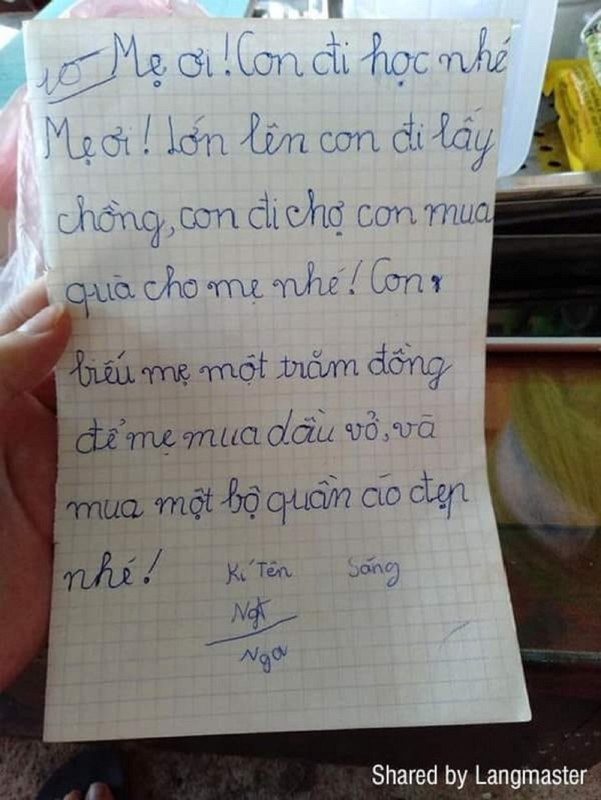 10 Mẹ ơi! Con đi học nhé
Mẹ ơi! Lớn lên con đi lấy
chồng, con đi chợ con mua
quà cho mẹ nhé! Con
biếu mẹ một trăm đồng
để mẹ mua dầu vở, và
mua một bộ quần áo đẹp
nhé! Kí Tên Sáng
Nga
Shared by Langmaster